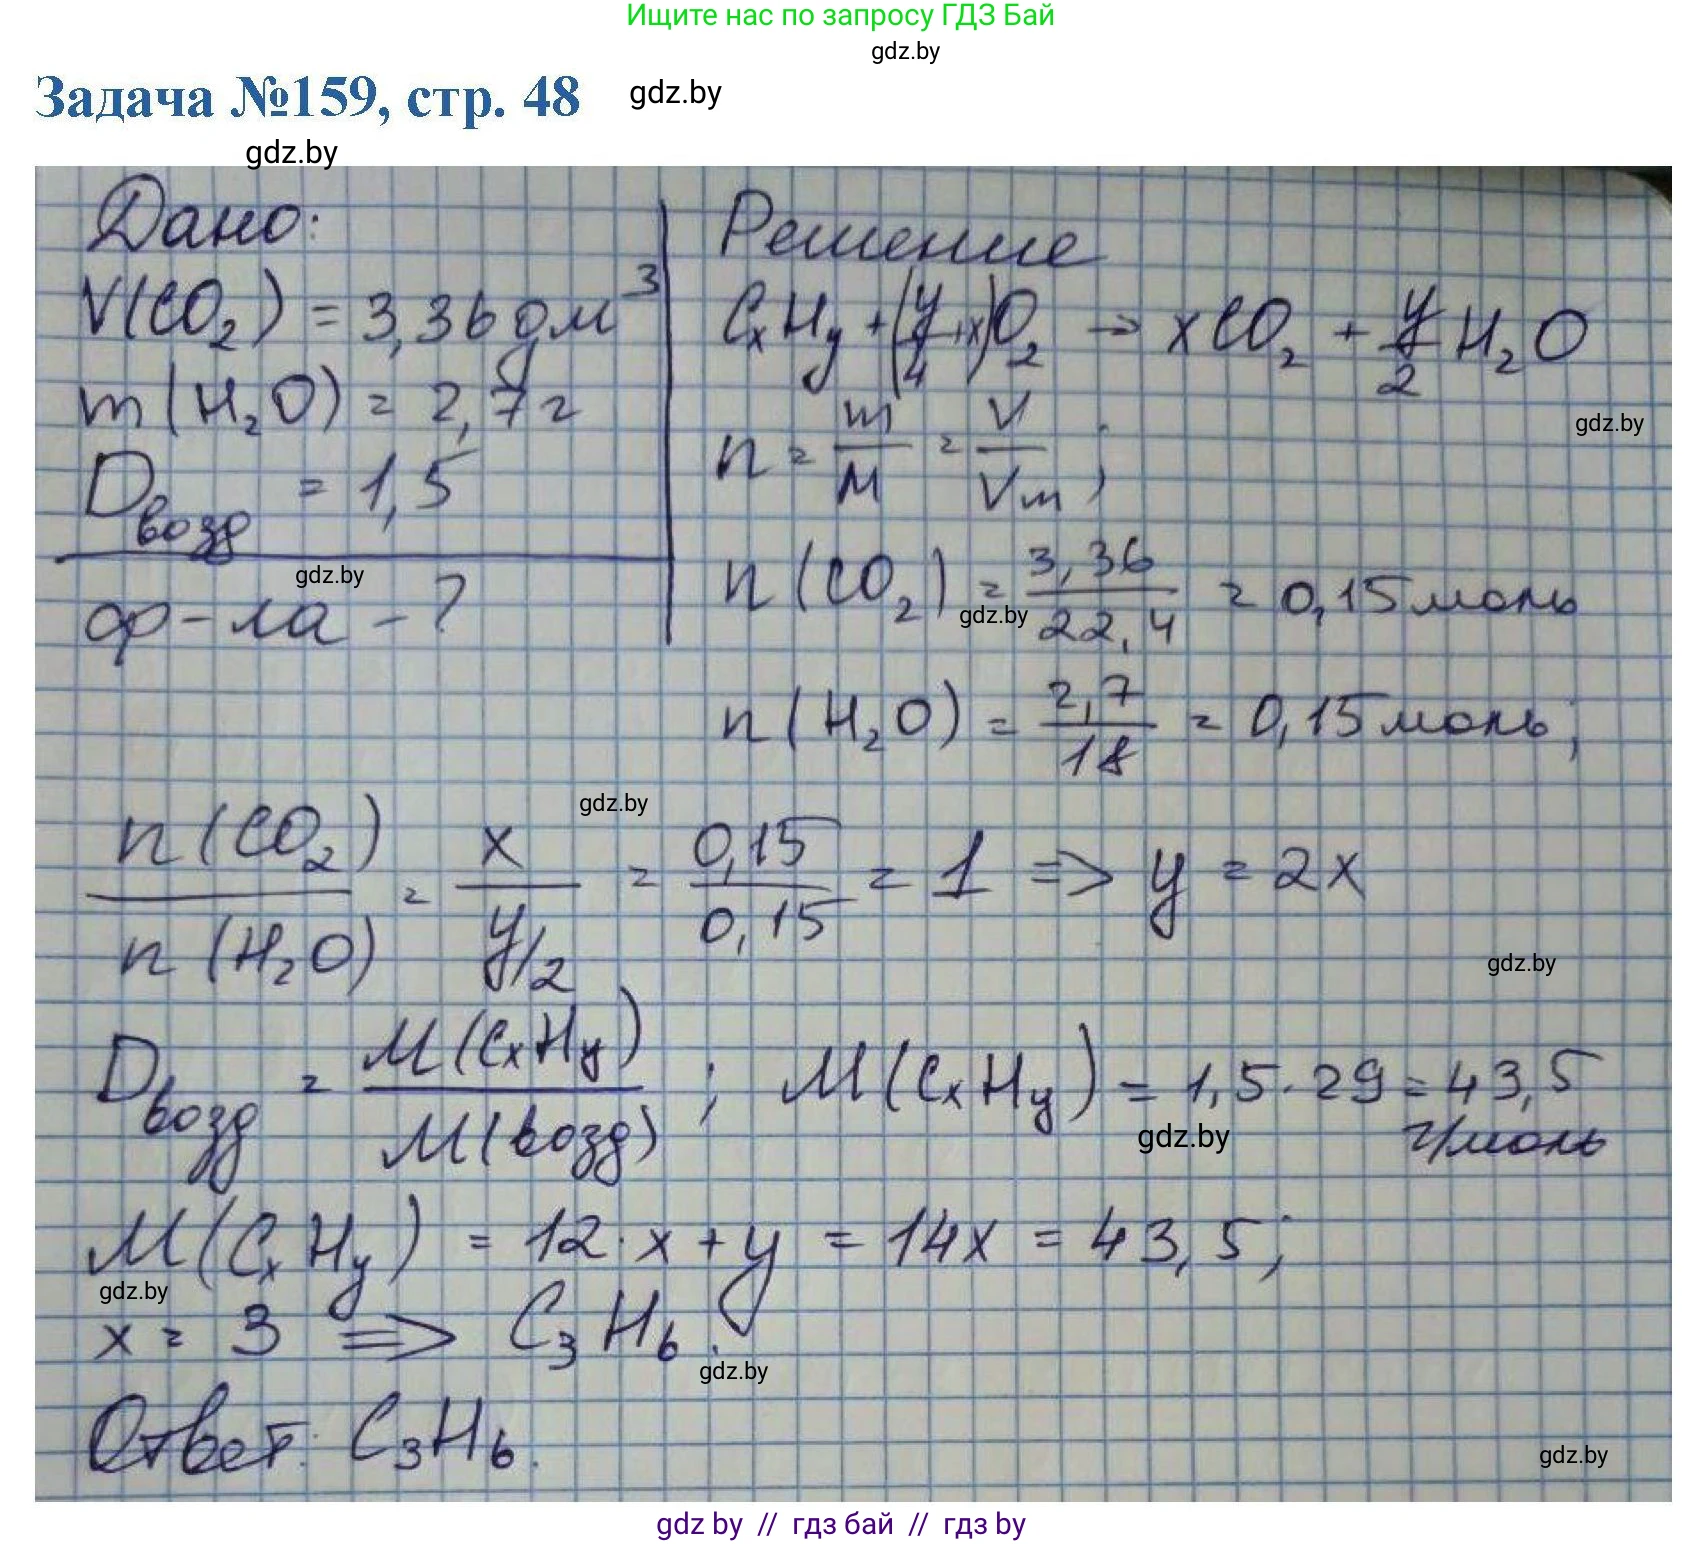 Ищите нас по запросу ГДЗ Бай
gdz.by
Задача №159, стр. 48
gdz.by
gdz.by
Дано:
V(CO₂) = 3,36 дм³
m(H₂O) = 2,7 г
Dвозд = 1,5
gdz.by
ф-ла - ?
Решение
CxHy + (y/4 + x)O₂ → xCO₂ + y/2 H₂O
gdz.by
n = m/M = V/Vm ;
n(CO₂) = 3,36/22,4 = 0,15 моль
gdz.by
n(H₂O) = 2,7/18 = 0,15 моль;
gdz.by
n(CO₂)/n(H₂O) = x/y/2 = 0,15/0,15 = 1 => y = 2x
gdz.by
Dвозд = M(CxHy)/M(возд) ; M(CxHy) = 1,5 · 29 = 43,5 г/моль
gdz.by
M(CxHy) = 12 · x + y = 14x = 43,5;
gdz.by
x = 3 => C₃H₆.
gdz.by
Ответ: C₃H₆.
gdz.by
gdz by // гдз бай // гдз by